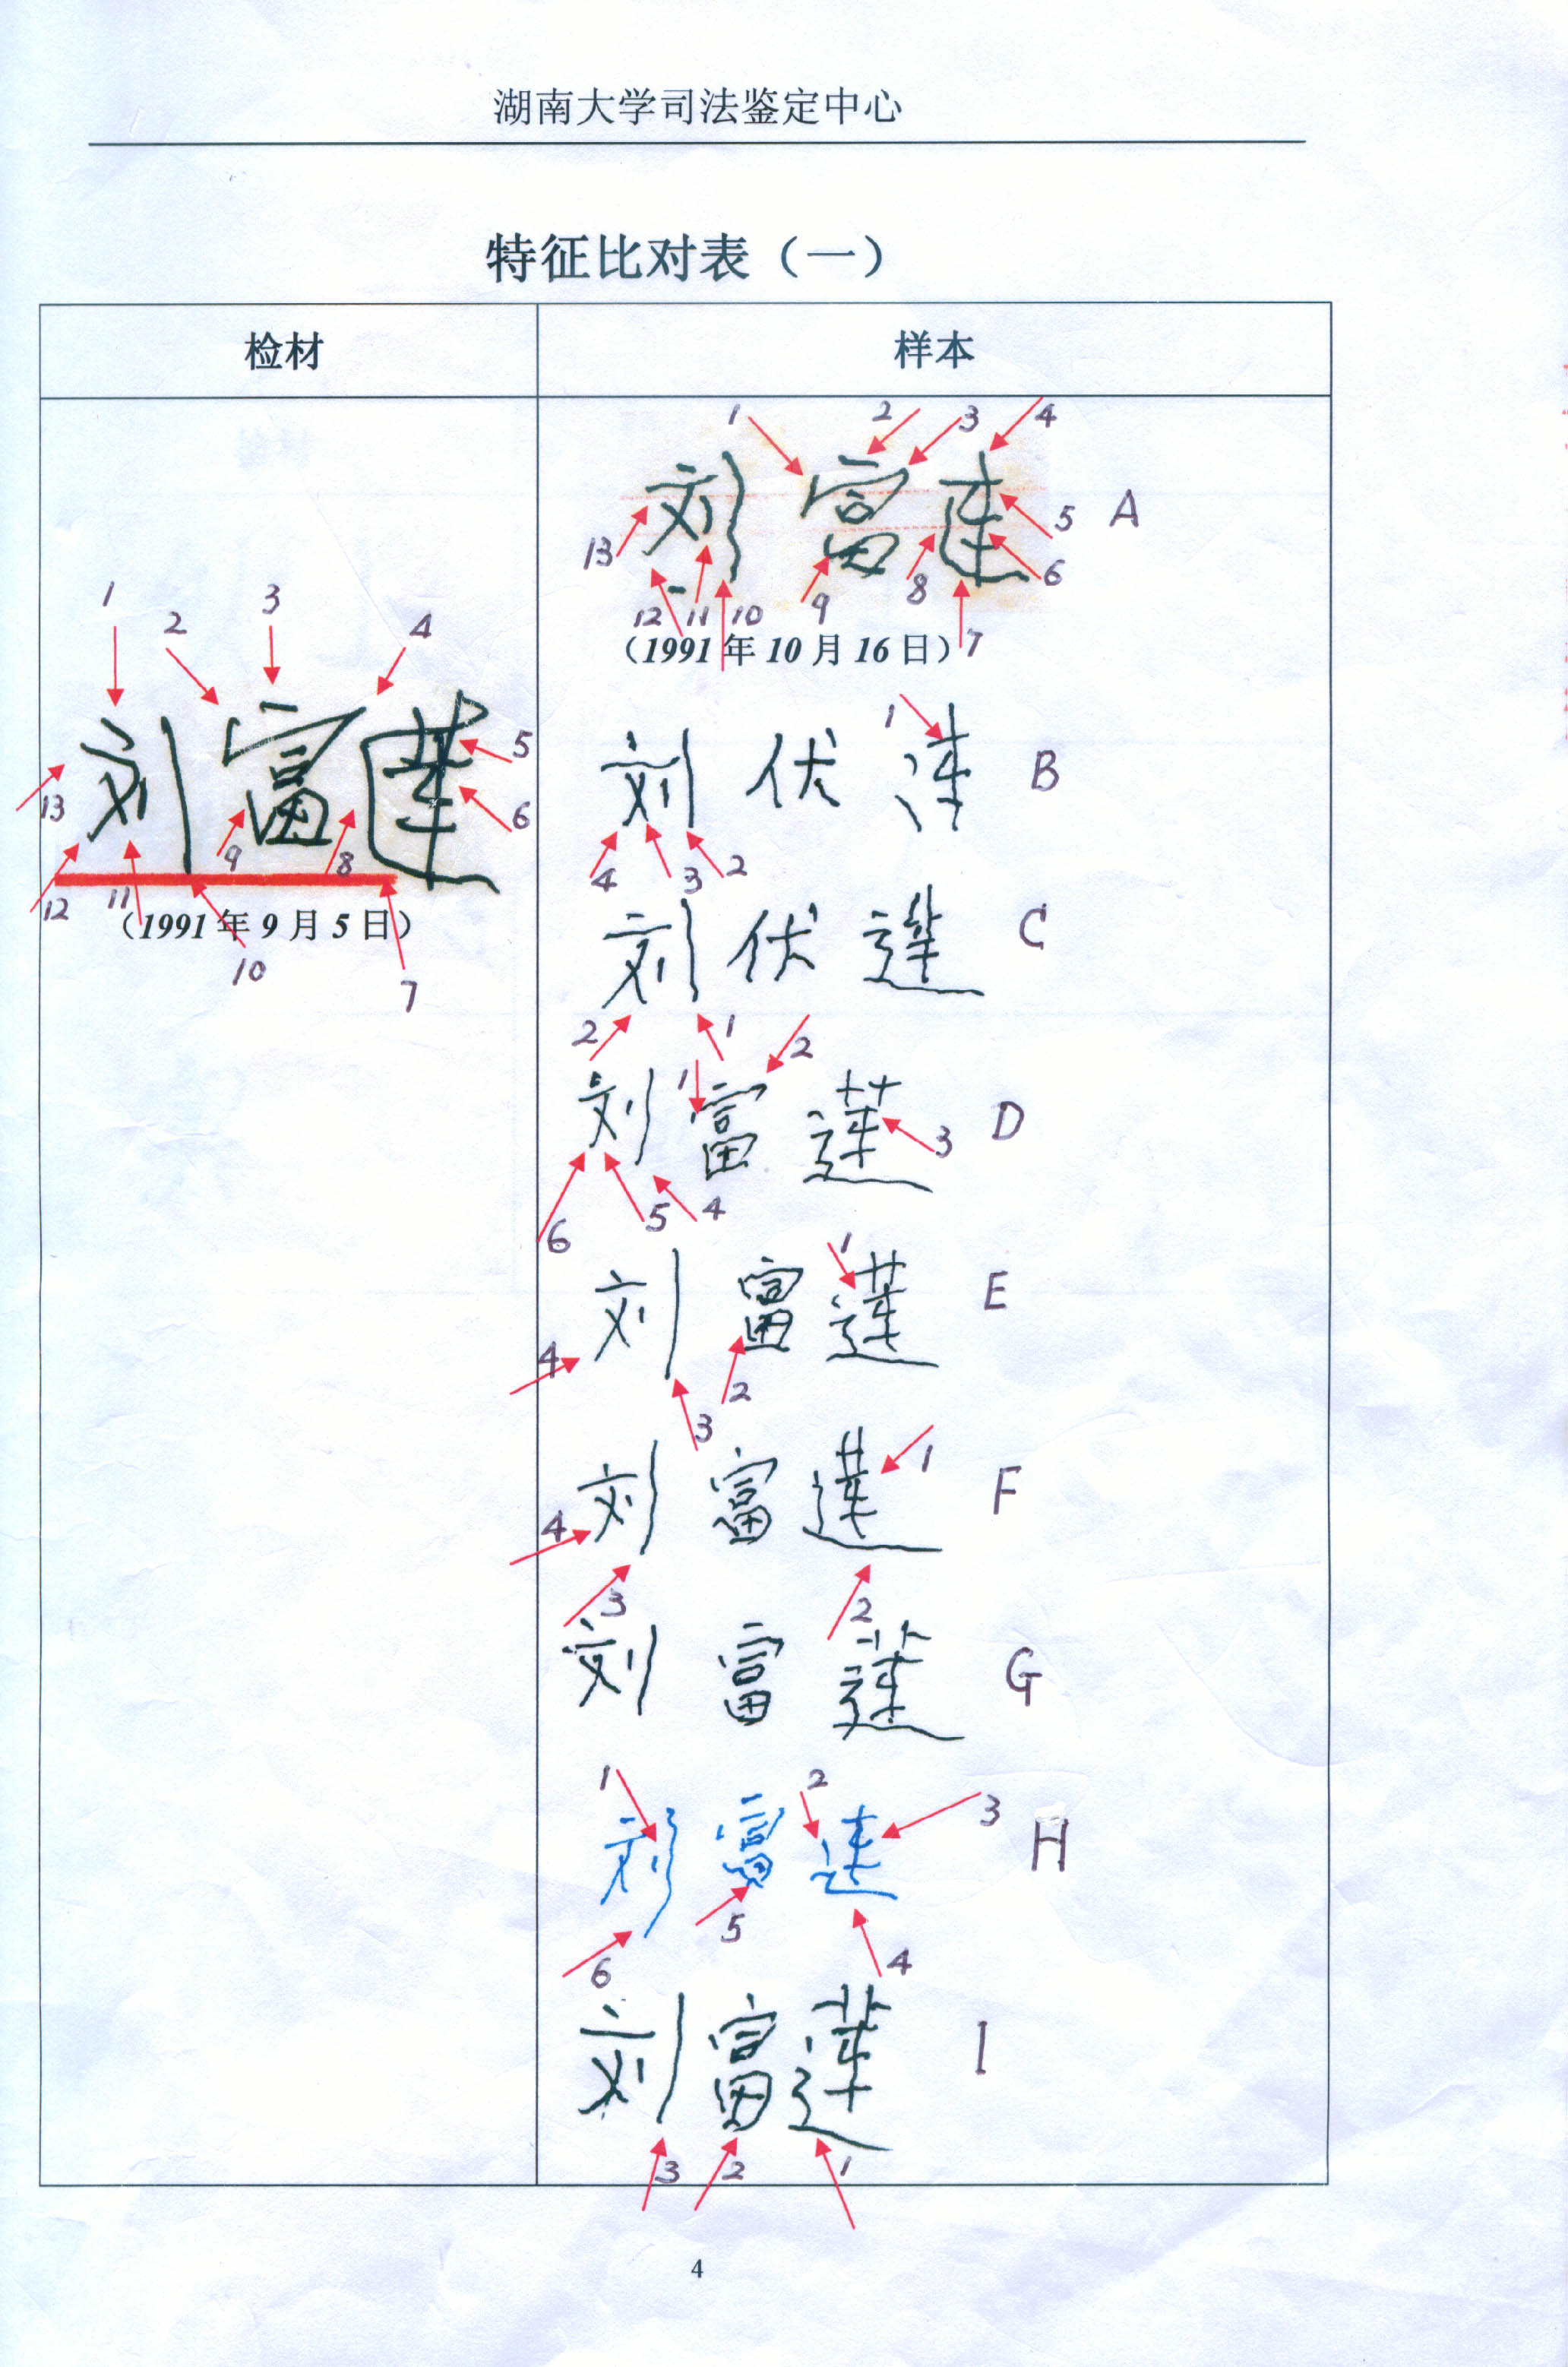 湖南大学司法鉴定中心
特征比对表（一）
检材
样本
1
2
3
4
刘富蓮
5
6
7
8
9
10
11
12
13
（1991年9月5日）
1
2
3
4
刘富連
A
5
6
7
8
9
10
11
12
13
（1991年10月16日）
1
刘伏連
B
4
3
2
刘伏蓮
C
2
1
1
2
刘富蓮
D
3
6
5
4
1
刘富蓮
E
4
2
3
刘富蓮
1
F
4
3
2
刘富蓮
G
1
2
3
刘富連
H
5
6
4
刘富蓮
I
3
2
1
4